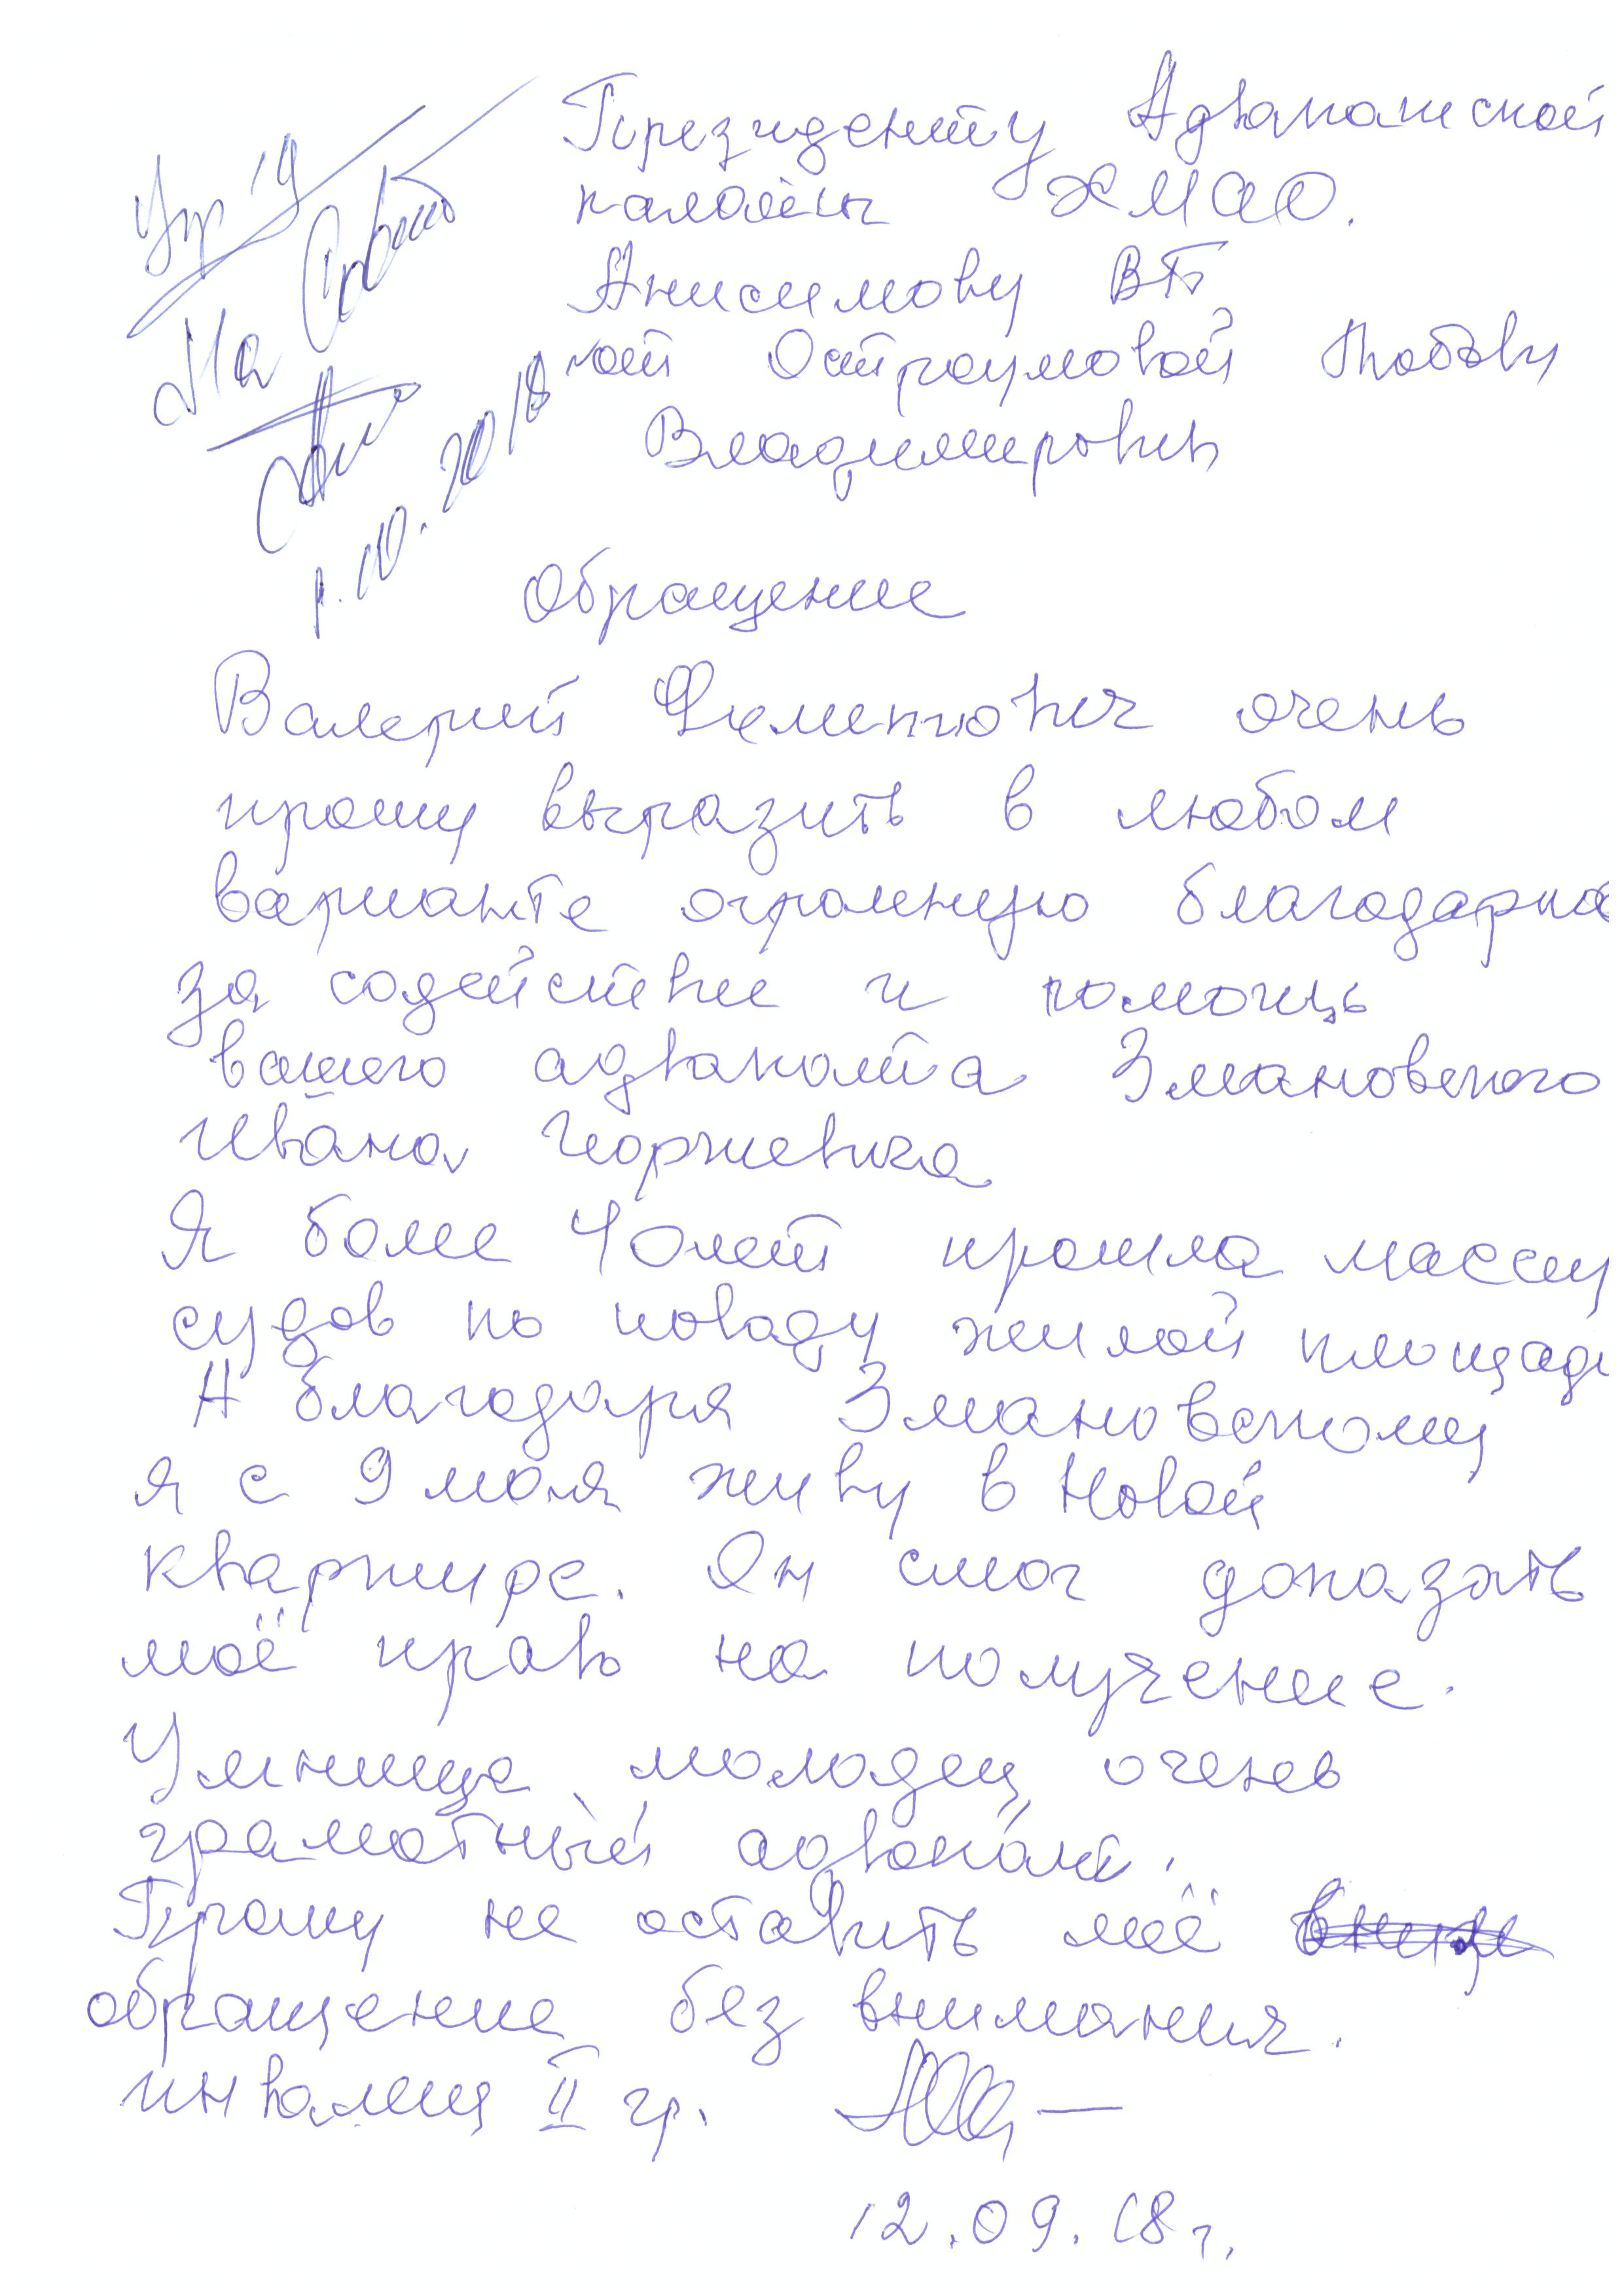 Президенту Адвокатской
палаты ХМАО.
Анисимову ВФ
от Остроумовой Любовь
Владимировны
На Совет
10.2018
Обращение
Валерий Филиппович очень
прошу выразить в любом
варианте огромную благодарно
за содействие и помощь
вашего адвоката Змановского
Ивана Георгиевича
Я более 10 лет прошла массу
судов по поводу жилой площади
А благодаря Змановскому
я с 9 мая живу в новой
квартире. Он смог доказать
моё право на получение.
Умница, молодец, очень
грамотный адвокат.
Прошу не оставить моё
обращение без внимания.
инвалид II гр.
12.09.18 г.